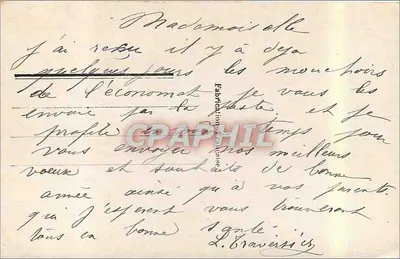 Mademoiselle
j'ai reçu il y a deja
quelques jours les mouchoirs
de l'économat je vous les
envoie par la poste et je
profite en même temps pour
vous envoyer mes meilleurs
voeux et souhaits de bonne
année ainsi qu'à vos parents
qui j'esperent vous trouveront
tous en bonne santé
L. Traversier
Fabrication Française
CPAPHIL